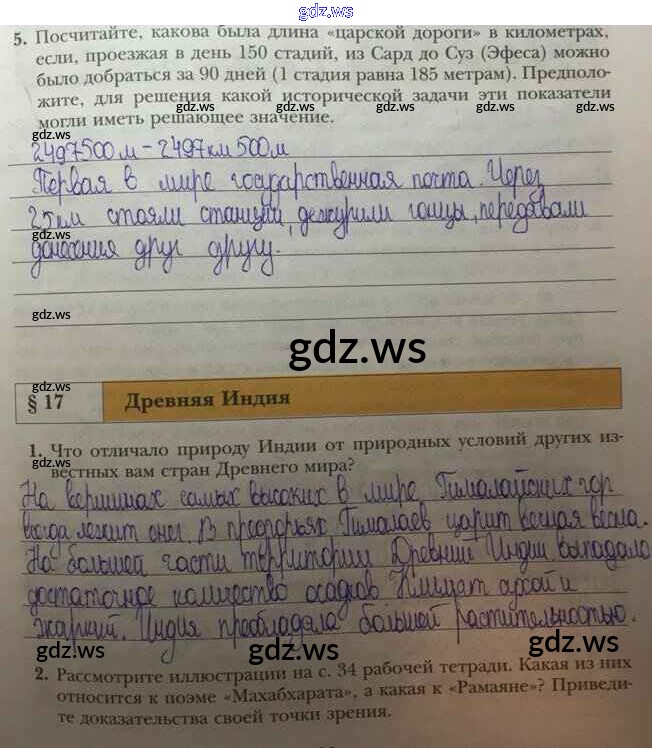 gdz.ws
5. Посчитайте, какова была длина «царской дороги» в километрах,
если, проезжая в день 150 стадий, из Сард до Суз (Эфеса) можно
было добраться за 90 дней (1 стадия равна 185 метрам). Предполо-
gdz.ws gdz.ws gdz.ws
жите, для решения какой исторической задачи эти показатели
могли иметь решающее значение.
gdz.ws gdz.ws gdz.ws
2497500 м – 2497 км 500 м
Первая в мире государственная почта. Через
gdz.ws
25 км стояли станции, дежурили гонцы, передавали
gdz.ws
донесения друг другу.
gdz.ws
gdz.ws
gdz.ws
§ 17 Древняя Индия
gdz.ws
1. Что отличало природу Индии от природных условий других из-
gdz.ws
вестных вам стран Древнего мира?
На вершинах самых высоких в мире Гималайских гор
всегда лежит снег. В предгорьях Гималаев царит вечная весна.
gdz.ws
На большей части территории Древние Индии выпадало
достаточное количество осадков Климат сухой и
gdz.ws
жаркий. Индия преобладала большой растительностью.
gdz.ws gdz.ws
2. Рассмотрите иллюстрации на с. 34 рабочей тетради. Какая из них
относится к поэме «Махабхарата», а какая к «Рамаяне»? Приведи-
gdz.ws gdz.ws gdz.ws
те доказательства своей точки зрения.
gdz.ws